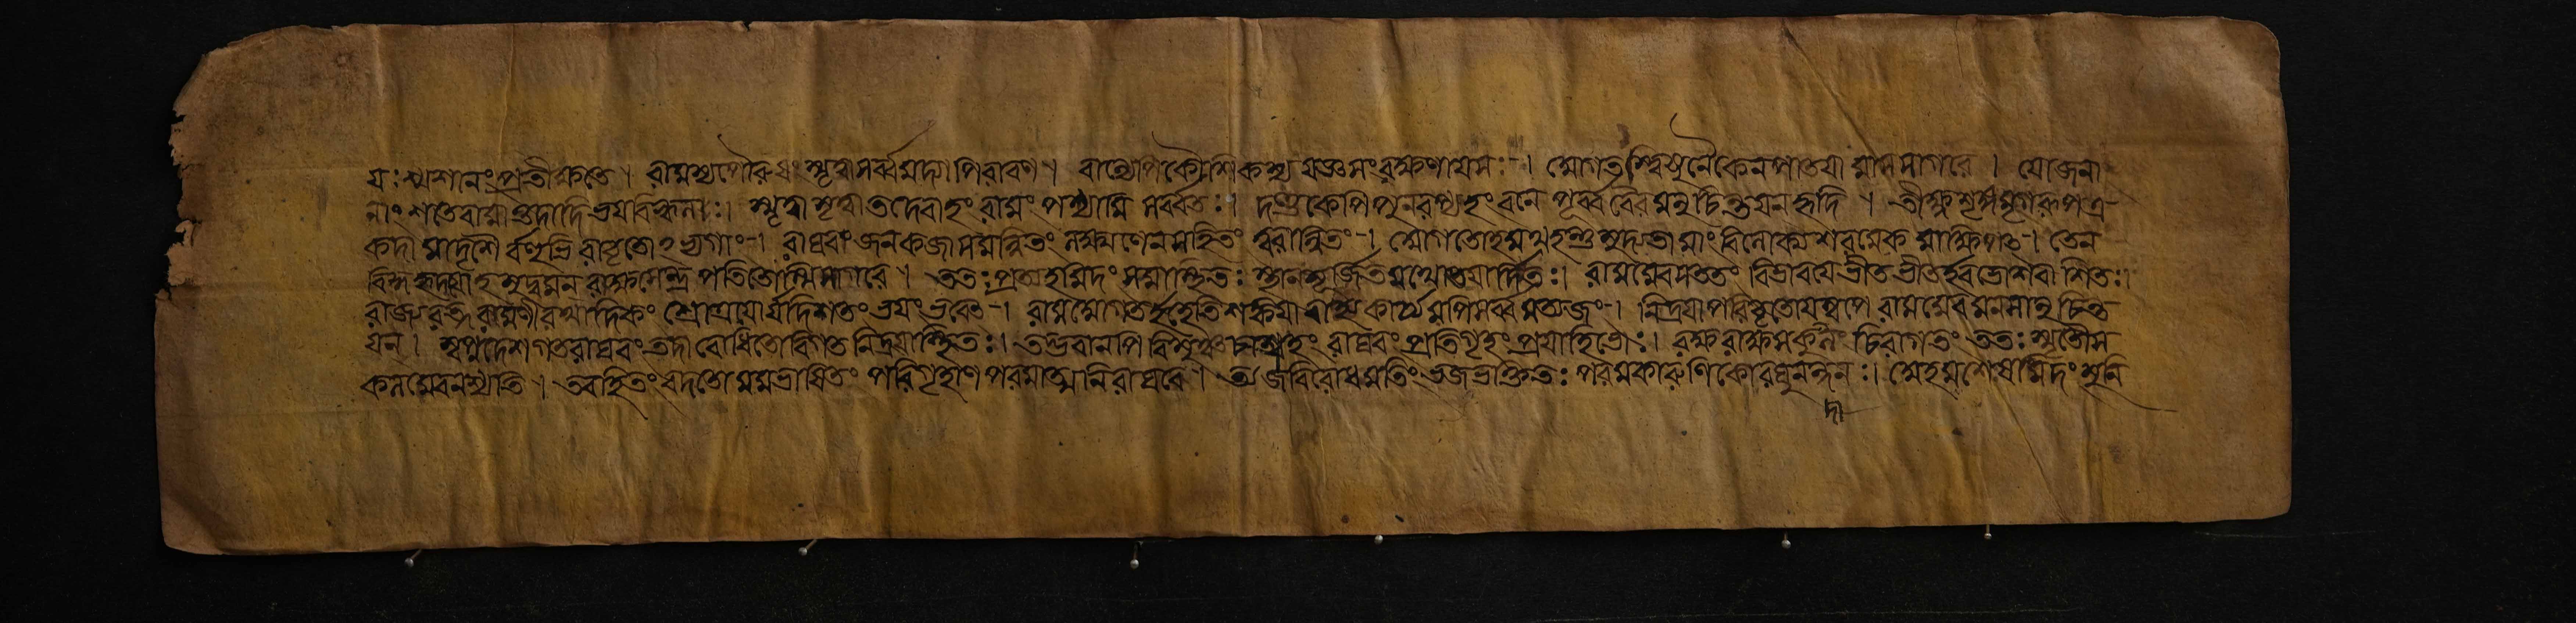 যঃশ্মশানং প্রতীক্ষতে । রামস্যপৌরুষং স্মৃত্বাসর্ব্বমদ্যাপিরাবণ । বাল্যেপিকৌশিকস্য যজ্ঞসংরক্ষণায়সঃ । মোগতস্ত্বিষুনৈকেনপাতয়ামাসসাগরে । যোজনা
নাং শতেরামস্তদাদিভয়বিহ্বলঃ । স্মৃত্বাস্মৃত্বাতদেবাহং রামং পশ্যামি সর্ব্বতঃ । দণ্ডকেপিপুনরপ্যহং বনে পূর্ব্ববৈরমনুচিন্তয়নহৃদি । তীক্ষ্ণশৃঙ্গমৃগরূপমে
কদা মাদৃশৈর্বহুভিরাবৃতোঽভ্যগাং । রাঘবং জনকজাসমন্বিতং লক্ষ্মণেনসহিতং ত্বরান্বিতং । মোগতোহমথহন্তুমুদ্যতোমাং বিলোক্যশরমেকমাক্ষিপৎ । তেন
বিদ্ধহৃদয়োহমুদ্ভ্রমন রাক্ষসেন্দ্র পতিতোস্মিসাগরে । ততঃপ্রভৃত্যহমিদং সমাস্থিতঃ স্থানমূর্জ্জিতমথোভয়ার্দিতঃ । রামমেবসততং বিভাবয়েভীতভীতইবভোগরাশিতঃ ।
রাজ্যরত্নরমণীরথাদিকং শ্রোত্রয়োর্যদিগতং ভয়ং ভবেৎ । রামমোগতইহেতিশঙ্কয়াবাহ্যকার্য্যমপিসর্ব্বমত্যজং । নিদ্রয়াপরিবৃতোযদাস্বপে রামমেবমনসানুচিন্ত
য়ন্ । স্বপ্নদেশগতরাঘবং তদাবোধিতোবিগতনিদ্রআস্থিতঃ । তদ্ভবানপিবিমুঞ্চচাগ্রহং রাঘবং প্রতিগৃহং প্রয়াহিভোঃ । রক্ষরাক্ষসকুলং চিরাগতং ততঃস্মৃতৌস
কলমেবনশ্যতি । তবহিতং বদতোমমভাষিতং পরিগৃহাণপরমাত্মনিরাঘবে । ত্যজবিরোধমতিং ভজভক্তিতঃ পরমকারুণিকোরঘুনন্দনঃ । মেহমশেষমিদং মুনি
দা